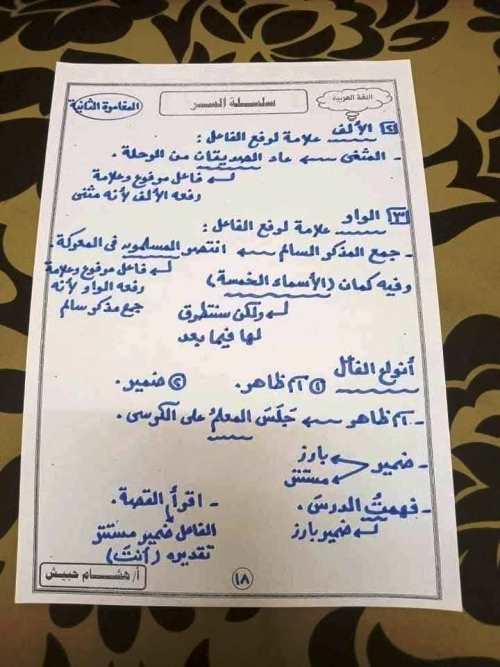 اللغة العربية
سلسلة السر
المغامرة الثانية
٢ الألف علامة لرفع الفاعل :
- المثنى ← عاد الصديقان من الرحلة .
فاعل مرفوع وعلامة
رفعه الألف لأنه مثنى
٣ الواو علامة لرفع الفاعل :
- جمع المذكر السالم ← انتصر المسلمون في المعركة .
فاعل مرفوع وعلامة
رفعه الواو لأنه
جمع مذكر سالم
وفيه كمان (الأسماء الخمسة)
ولكن سنتطرق
لها فيما بعد
أنواع الفاعل
١ اسم ظاهر . ٢ ضمير .
- اسم ظاهر ← جَلَسَ المعلمُ على الكرسى .
- ضمير
بارز
مستتر
- فهمتُ الدرسَ .
ضمير بارز
- اقرأ القصة .
الفاعل ضمير مستتر
تقديره (أنتَ)
أ/ هشام حبيش
١٨